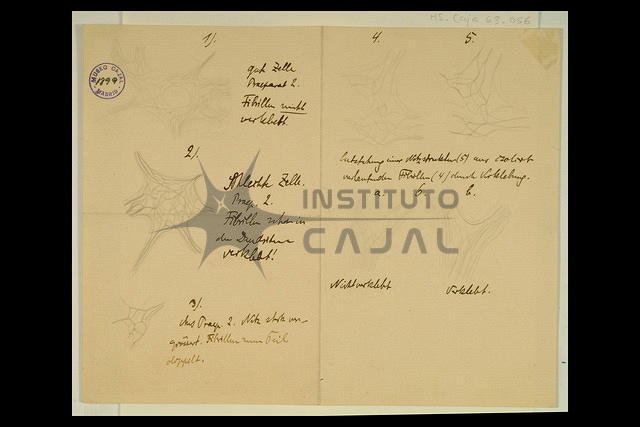 MS. Caja 63.056
MUSEO CAJAL
1899
MADRID
1).
gute Zelle
Praeparat 2.
Fibrillen nicht
verklebt.
2).
Schlechte Zelle.
Praep. 2.
Fibrillen schon in
den Dendriten
verklebt!
3).
Aus Praep. 2. Netz stark ver-
grössert. Fibrillen zum Teil
doppelt.
4.
5.
Entstehung einer Netzstruktur (5) aus isoliert
verlaufenden Fibrillen (4) durch Verklebung.
a. b.
Nicht verklebt
Verklebt.
INSTITUTO
CAJAL